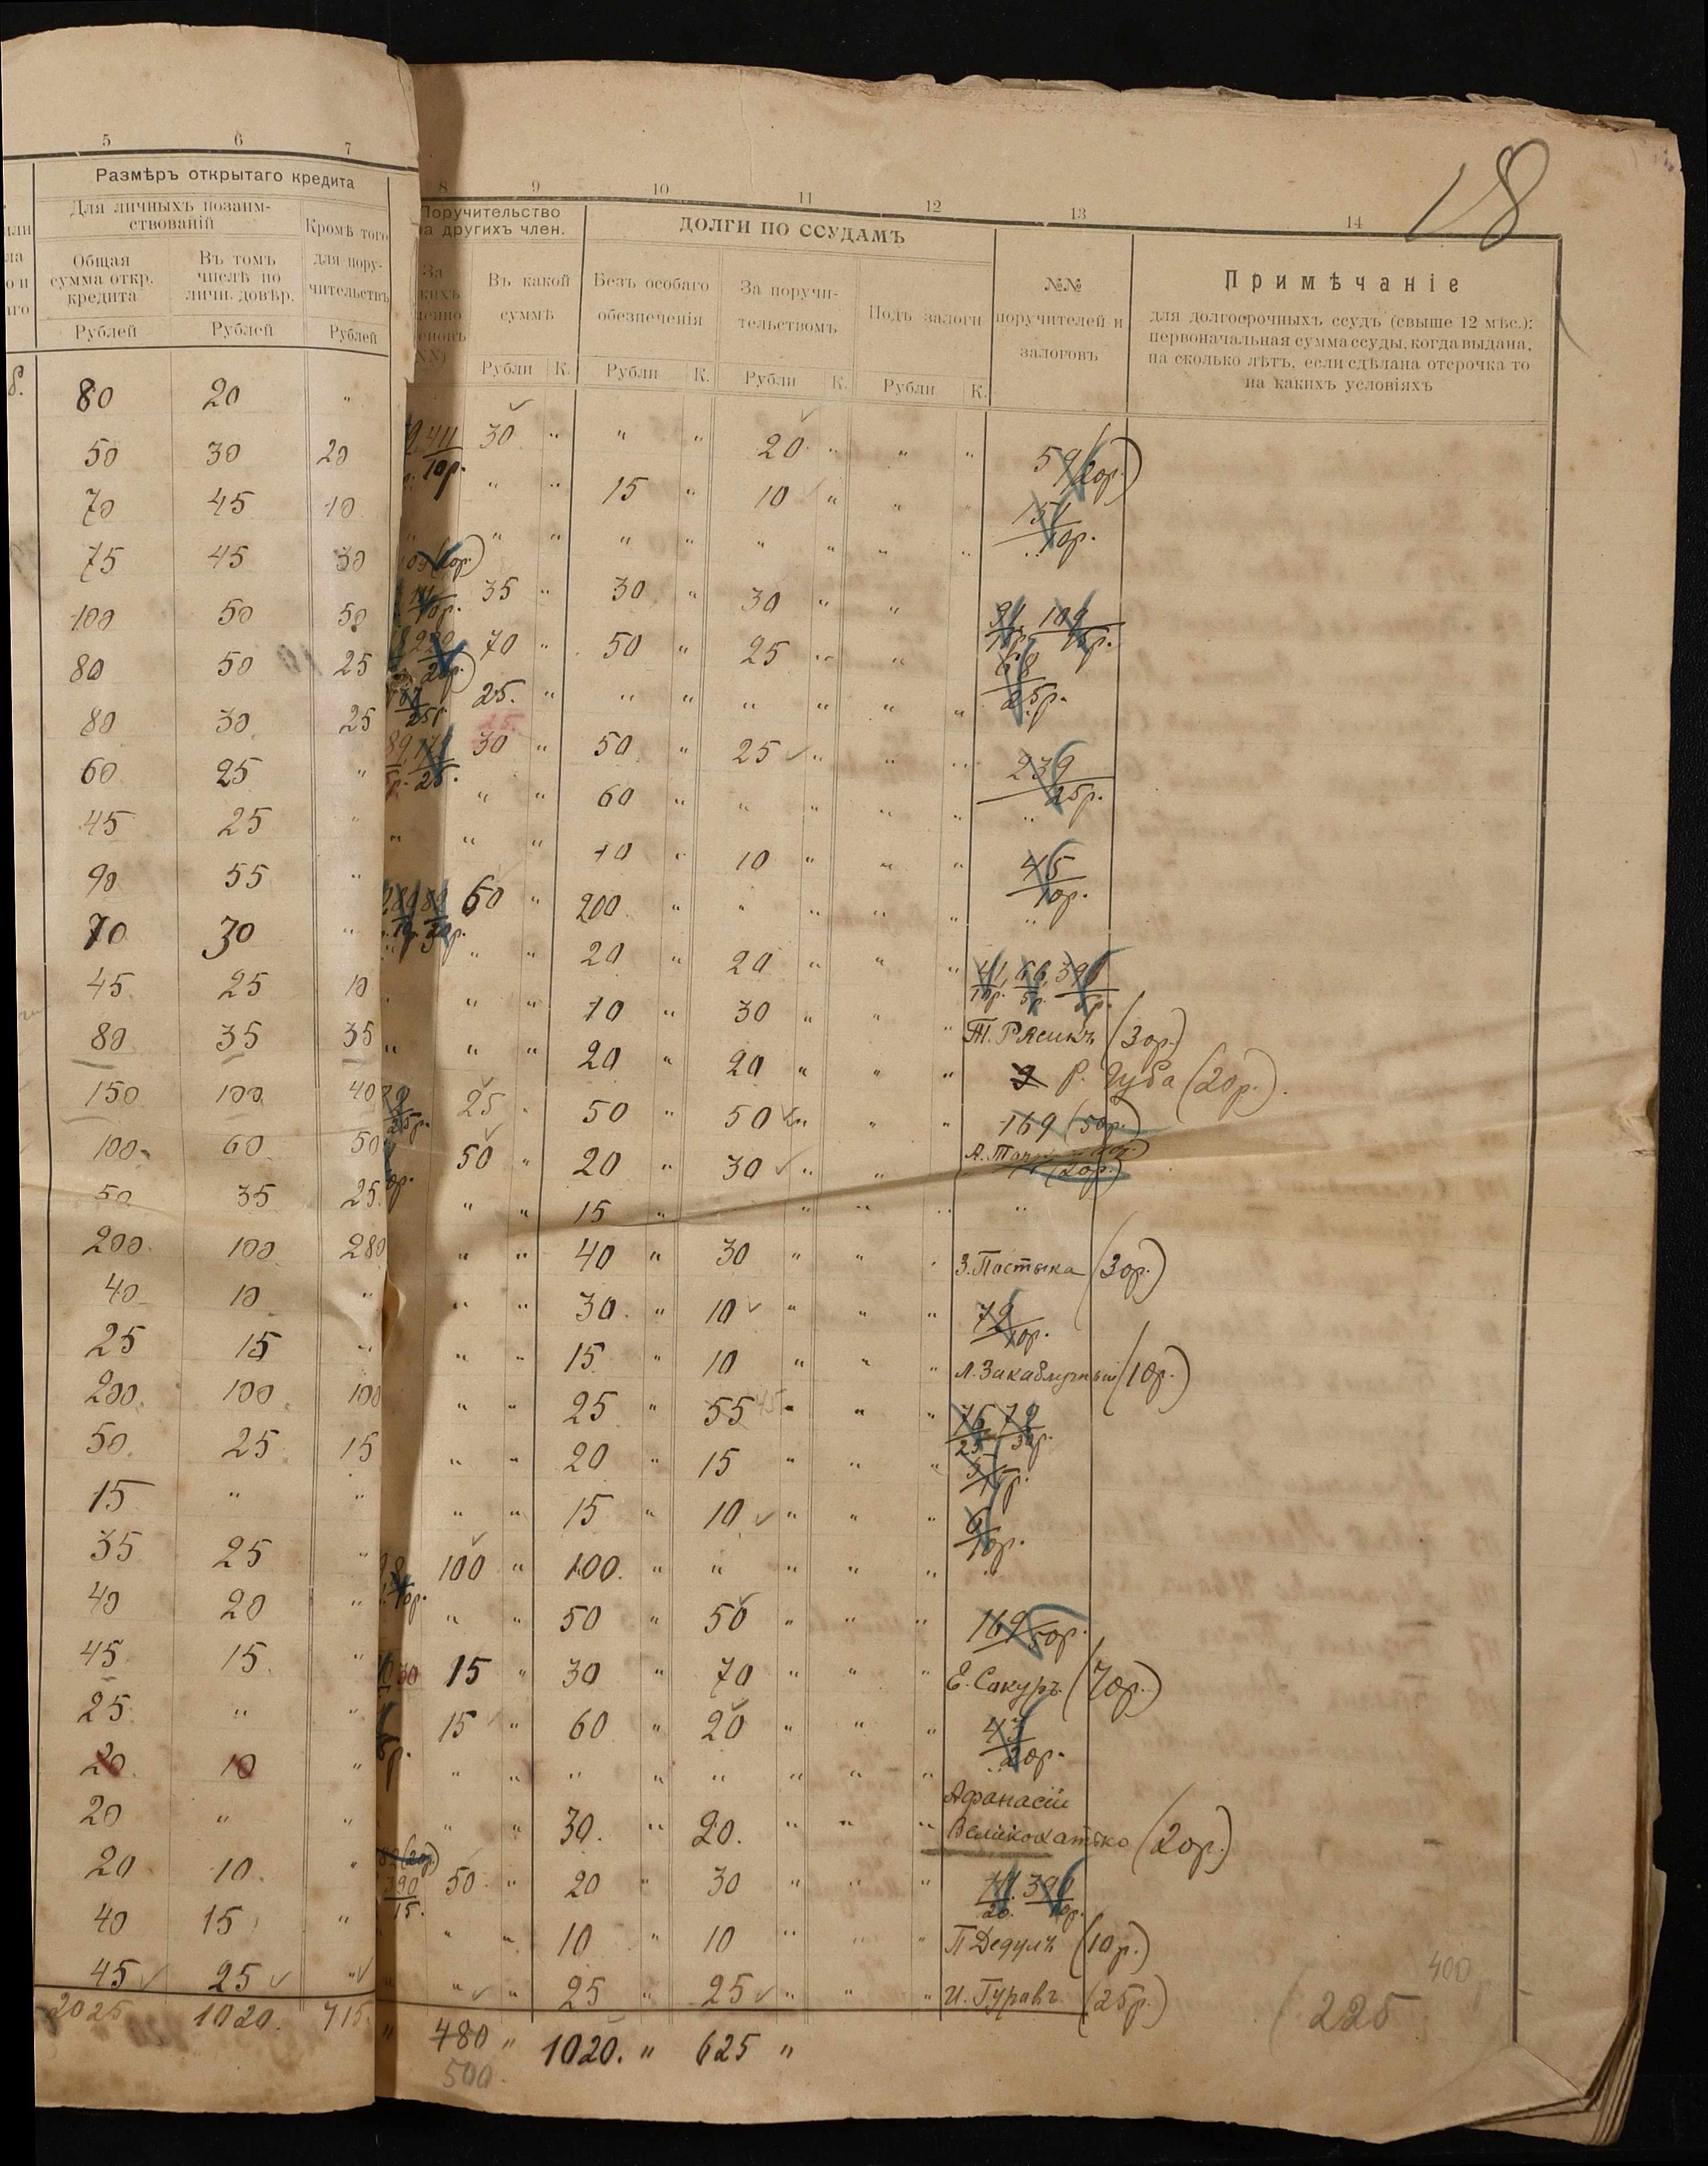 18
5 6 7
Размѣръ открытаго кредита
Для личныхъ позаим-
ствованій
Кромѣ того
для пору-
чительствъ
Общая
сумма откр.
кредита
Въ томъ
числѣ по
личн. довѣр.
Рублей Рублей Рублей
80 20 "
50 30 20
70 45 10
75 45 30
100 50 50
80 50 25
80 30 25
60 25 "
45 25 "
90 55 "
70 30 "
45 25 10
80 35 35
150 100 40
100 60 50
50 35 25
200 100 280
40 10 "
25 15 "
200 100 100
50 25 15
15 " "
35 25 "
40 20 "
45 15 "
25 " "
20 10 "
20 " "
20 10 "
40 15 "
45 25 "
2025 1020 715
8 9 10 11 12 13 14
Поручительство
на другихъ член.
ДОЛГИ ПО ССУДАМЪ
№№
поручителей и
залоговъ
Примѣчаніе
для долгосрочныхъ ссудъ (свыше 12 мѣс.):
первоначальная сумма ссуды, когда выдана,
на сколько лѣтъ, если сдѣлана отсрочка то
на какихъ условіяхъ
Въ какой
суммѣ
Безъ особаго
обезпеченія
За поручи-
тельствомъ
Подъ залоги
Рубли К. Рубли К. Рубли К. Рубли К.
30 " " " 20 " " " 59 (20р.)
" " 15 " 10 " " " 151 10р.
" " " " " " " "
35 " 30 " 30 " " 91 109 15р.
70 " 50 " 25 " " 68 25р.
25. " " " " " " "
30 " 50 " 25 " " " 239 25р.
" " 60 " " " " " "
" " 10 " 10 " " " 45 10р.
60 " 200 " " " " " "
" " 20 " 20 " " " 41 66 390
" " 10 " 30 " " " Т. Рясикъ (30р.)
" " 20 " 20 " " " Р. Губа (20р.)
25 " 50 " 50 " " " 169 (50р.)
50 " 20 " 30 " "
" " 15 " " " " "
" " 40 " 30 " " " З. Постыка (30р.)
" " 30. " 10 " " " 72 10р.
" " 15 " 10 " " " Л. Закаблучный (10р.)
" " 25 " 55 45 " " " 76 72
" " 20 " 15 " " "
" " 15 " 10 " " " 10р.
100 " 100. " " " " " "
" " 50 " 50 " " " 169 50р.
15 " 30 " 70 " " " Е. Сакуръ (70р.)
15 " 60 " 20 " " " 43 20р.
" " " " " " " "
Афанасій
" " 30. " 20. " " " Великохатько (20р.)
50 " 20 " 30 " " " 390
" " 10 " 10 " " " П Дедулъ (10р.)
" " 25 " 25 " " " И. Гуравъ (25р.)
480 " 1020. " 625 "
500
400
225